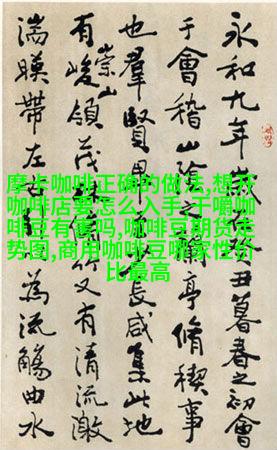 永和九年癸丑暮春之初會
于會稽山陰之蘭亭脩稧事
也羣賢長咸集此地
有崇山峻領茂竹又有清流激
湍暎帶左為流觴曲水
摩卡咖啡正确的做法,想开
咖啡店要怎么入手,干嚼咖
啡豆有害吗,咖啡豆期货走
势图,商用咖啡豆哪家性价
比最高